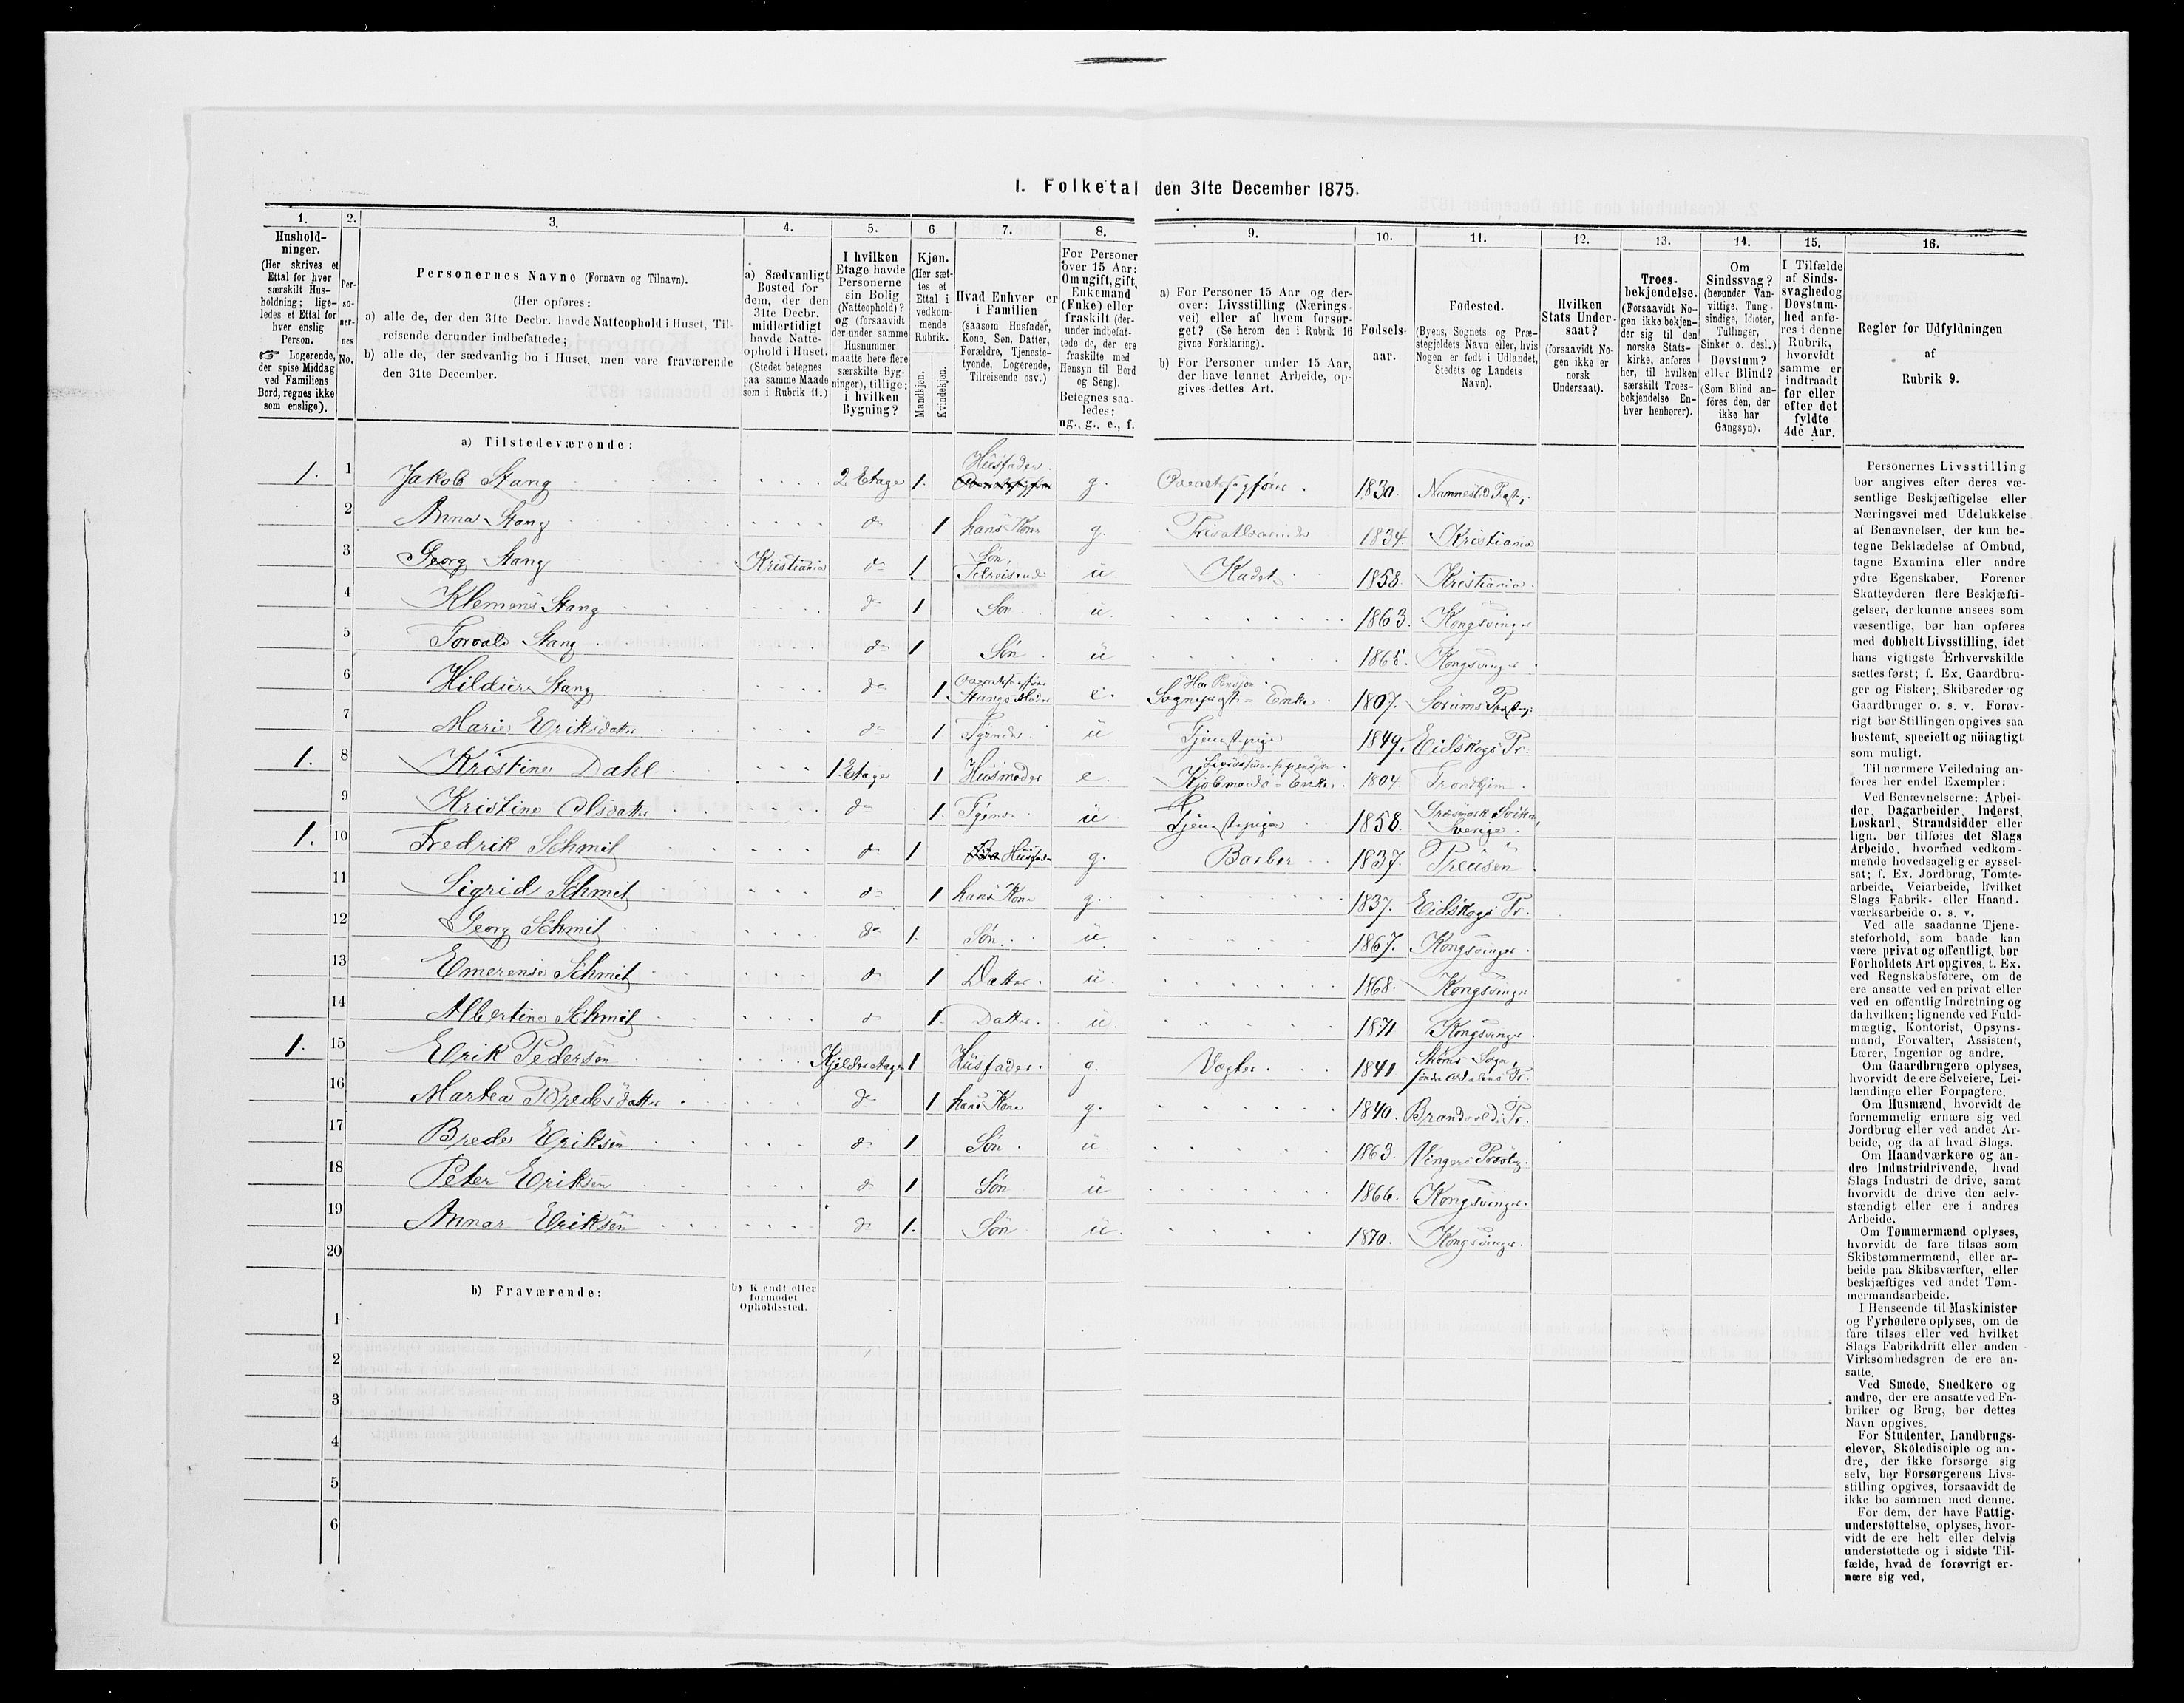 I. Folketal den 31te December 1875.
1. 2. 3. 4. 5. 6. 7. 8. 9. 10. 11. 12. 13. 14. 15. 16.
Hushold-
ninger.
(Her skrives et
Ettal for hver
særskilt Hus-
holdning; lige-
ledes et Ettal for
hver enslig
Person.
☞ Logerende,
der spise Middag
ved Familiens
Bord, regnes ikke
som enslige).
Per-
so-
ner-
nes
No.
Personernes Navne (Fornavn og Tilnavn).
(Her opføres:
a) alle de, der den 31te Decbr. havde Natteophold i Huset, Til-
reisende derunder indbefattede;
b) alle de, der sædvanlig bo i Huset, men vare fraværende
den 31te December.
a) Sædvanligt
Bosted for
dem, der den
31te Decbr.
midlertidigt
havde Natte-
ophold i Huset.
(Stedet betegnes
paa samme Maade
som i Rubrik 11.)
I hvilken
Etage havde
Personerne
sin Bolig
(Natteophold)?
og (forsaavidt
der under samme
Husnummer
maatte høre flere
særskilte Byg-
ninger), tillige:
i hvilken
Bygning?
Kjøn.
(Her sæt-
tes et
Ettal i
vedkom-
mende
Rubrik.
Mandkjøn.
Kvindekjøn.
Hvad Enhver er
i Familien
(saasom Husfader,
Kone, Søn, Datter,
Forældre, Tjeneste-
tyende, Logerende,
Tilreisende osv.)
For Personer
over 15 Aar:
Om ugift, gift,
Enkemand
(Enke) eller
fraskilt (der-
under indbefat-
tede de, der ere
fraskilte med
Hensyn til Bord
og Seng).
Betegnes saa-
ledes:
ug., g., e., f.
a) For Personer 15 Aar og der-
over: Livsstilling (Nærings-
vei) eller af hvem forsør-
get? (Se herom den i Rubrik 16
givne Forklaring).
b) For Personer under 15 Aar,
der have lønnet Arbeide, op-
gives dettes Art.
Fødsels-
aar.
Fødested.
(Byens, Sognets og Præ-
stegjeldets Navn eller, hvis
Nogen er født i Udlandet,
Stedets og Landets
Navn).
Hvilken
Stats Under-
saat?
(forsaavidt No-
gen ikke er
norsk
Undersaat).
Troes-
bekjendelse.
(Forsaavidt No-
gen ikke bekjen-
der sig til den
norske Stats-
kirke, anføres
her, til hvilken
særskilt Troes-
bekjendelse En-
hver henhører).
Om
Sindssvag?
(herunder Van-
vittige, Tung-
sindige, Idioter,
Tullinger,
Sinker o. desl.)
Døvstum?
eller Blind?
(Som Blind an-
føres den, der
ikke har
Gangsyn).
I Tilfælde
af Sinds-
svaghed og
Døvstum-
hed anfø-
res i denne
Rubrik,
hvorvidt
samme er
indtraadt
før eller
efter det
fyldte
4de Aar.
Regler for Udfyldningen
af
Rubrik 9.
a) Tilstedeværende:
1. 1 Jakob Stang 2 Etage 1. Husfader g. Overretssagfører. 1830. Nannestad Præstg.
2 Anna Stang do 1 hans Kone g. Privatlærerinde 1834. Kristiania
3 Georg Stang Kristiania do 1 Søn, Tilreisende u Kadet 1858. Kristiania.
4 Klemens Stang do 1 Søn u. 1863. Kongsvinger
5 Torvald Stang do 1 Søn u 1868. Kongsvinger
6 Hildur Stang do 1 Stangs Moder e. Har Pension. Sogneprest-Enke 1807. Sørums Præstg.
7 Marie Eriksdatter do 1 Tjener u Tjenestepige 1849. Eidskogs Pr.
1. 8 Kristine Dahl 1. Etage 1 Husmoder e. Kjøbmands-Enke. 1804. Trondhjem.
9 Kristine Olsdatter do 1. Tjener u Tjenestepige 1858. Sverige.
1. 10 Fredrik Schmit do 1 Husfader g. Barber 1837. Preusen
11 Sigrid Schmit do 1 hans Kone g. 1837. Eidskogs Pr.
12 Georg Schmit do 1. Søn u. 1867. Kongsvinger
13 Emerense Schmit do 1 Datter. u. 1868. Kongsvinger
14 Albertine Schmit do 1. Datter. u. 1871 Kongsvinger
1. 15 Erik Pedersen Kjelderetagen 1 Husfader. g. Vægter. 1841 Strøms Sogn, søndre Odalens Pr.
16 Martea Bredesdatter do 1 hans Kone g. 1840. Brandvolds Pr.
17 Brede Eriksen do 1 Søn. u 1863. Vingers Præstg.
18 Peter Eriksen do 1 Søn u 1866. Kongsvinger.
19 Annar Eriksen do 1. Søn u. 1870. Kongsvinger.
20
b) Fraværende:
b) Kendt eller
formodet
Opholdssted.
1
2
3
4
5
6
Personernes Livsstilling
bør angives efter deres væ-
sentlige Beskjæftigelse eller
Næringsvei med Udelukkelse
af Benævnelser, der kun be-
tegne Beklædelse af Ombud,
tagne Examina eller andre
ydre Egenskaber. Forener
Skatteyderen flere Beskjæfti-
gelser, der kunne ansees som
væsentlige, bør han opføres
med dobbelt Livsstilling, idet
hans vigtigste Erhvervskilde
sættes først; f. Ex. Gaardbru-
ger og Fisker; Skibsreder og
Gaardbruger o. s. v. Forøv-
rigt bør Stillingen opgives saa
bestemt, specielt og nöiagtigt
som muligt.
Til nærmere Veiledning an-
føres her endel Exempler:
Ved Benævnelserne: Arbei-
der, Dagarbeider, Inderst,
Løskarl, Strandsidder eller
lign. bør tilføies det Slags
Arbeide, hvormed vedkom-
mende hovedsagelig er syssel-
sat; f. Ex. Jordbrug, Tomte-
arbeide, Veiarbeide, hvilket
Slags Fabrik- eller Haand-
værksarbeide o. s. v.
Ved alle saadanne Tjene-
steforhold, som baade kan
være privat og offentligt, bør
Forholdets Art opgives, t. Ex.
ved Regnskabsførere, om de
ere ansatte ved en privat eller
ved en offentlig Indretning og
da hvilken; lignende ved Fuld-
mægtig, Kontorist, Opsyns-
mand, Forvalter, Assistent,
Lærer, Ingeniør og andre.
Om Gaardbrugere oplyses,
hvorvidt de ere Selveiere, Lei-
lændinge eller Forpagtere.
Om Husmænd, hvorvidt de
fornemmelig ernære sig ved
Jordbrug eller ved andet Ar-
beide, og da af hvad Slags.
Om Haandværkere og an-
dre Industridrivende, hvad
Slags Industri de drive, samt
hvorvidt de drive den selv-
stændigt eller ere i andres
Arbeide.
Om Tømmermænd oplyses,
hvorvidt de fare tilsøs som
Skibstømmermænd, eller ar-
beide paa Skibsværfter, eller
beskjæftiges ved andet Tøm-
mermandsarbeide.
I Henseende til Maskinister
og Fyrbødere oplyses, om de
fare tilsøs eller ved hvilket
Slags Fabrikdrift eller anden
Virksomhedsgren de ere an-
satte.
Ved Smede, Snedkere og
andre, der ere ansatte ved Fa-
briker og Brug, bør dettes
Navn opgives.
For Studenter, Landbrugs-
elever, Skoledisciple og an-
dre, der ikke forsørge sig
selv, bør Forsørgerens Livs-
stilling opgives, forsaavidt de
ikke bo sammen med denne.
For dem, der have Fattig-
understøttelse, oplyses, hvor-
vidt de ere helt eller delvis
understøttede og i sidste Til-
fælde, hvad de forøvrigt er-
nære sig ved.